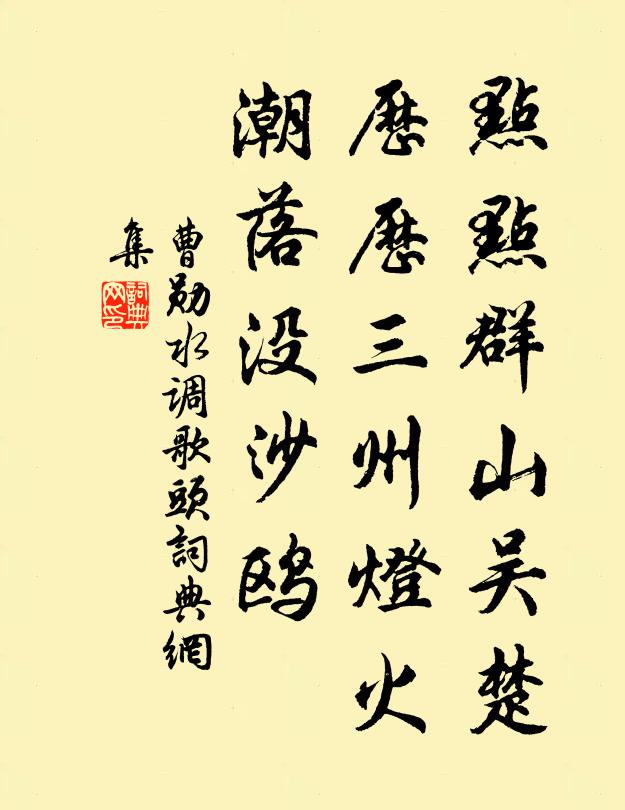 點點群山吴楚
歷歷三州燈火
潮落没沙鸥
曹勋水调歌頭詞典網
集
詞典
网印